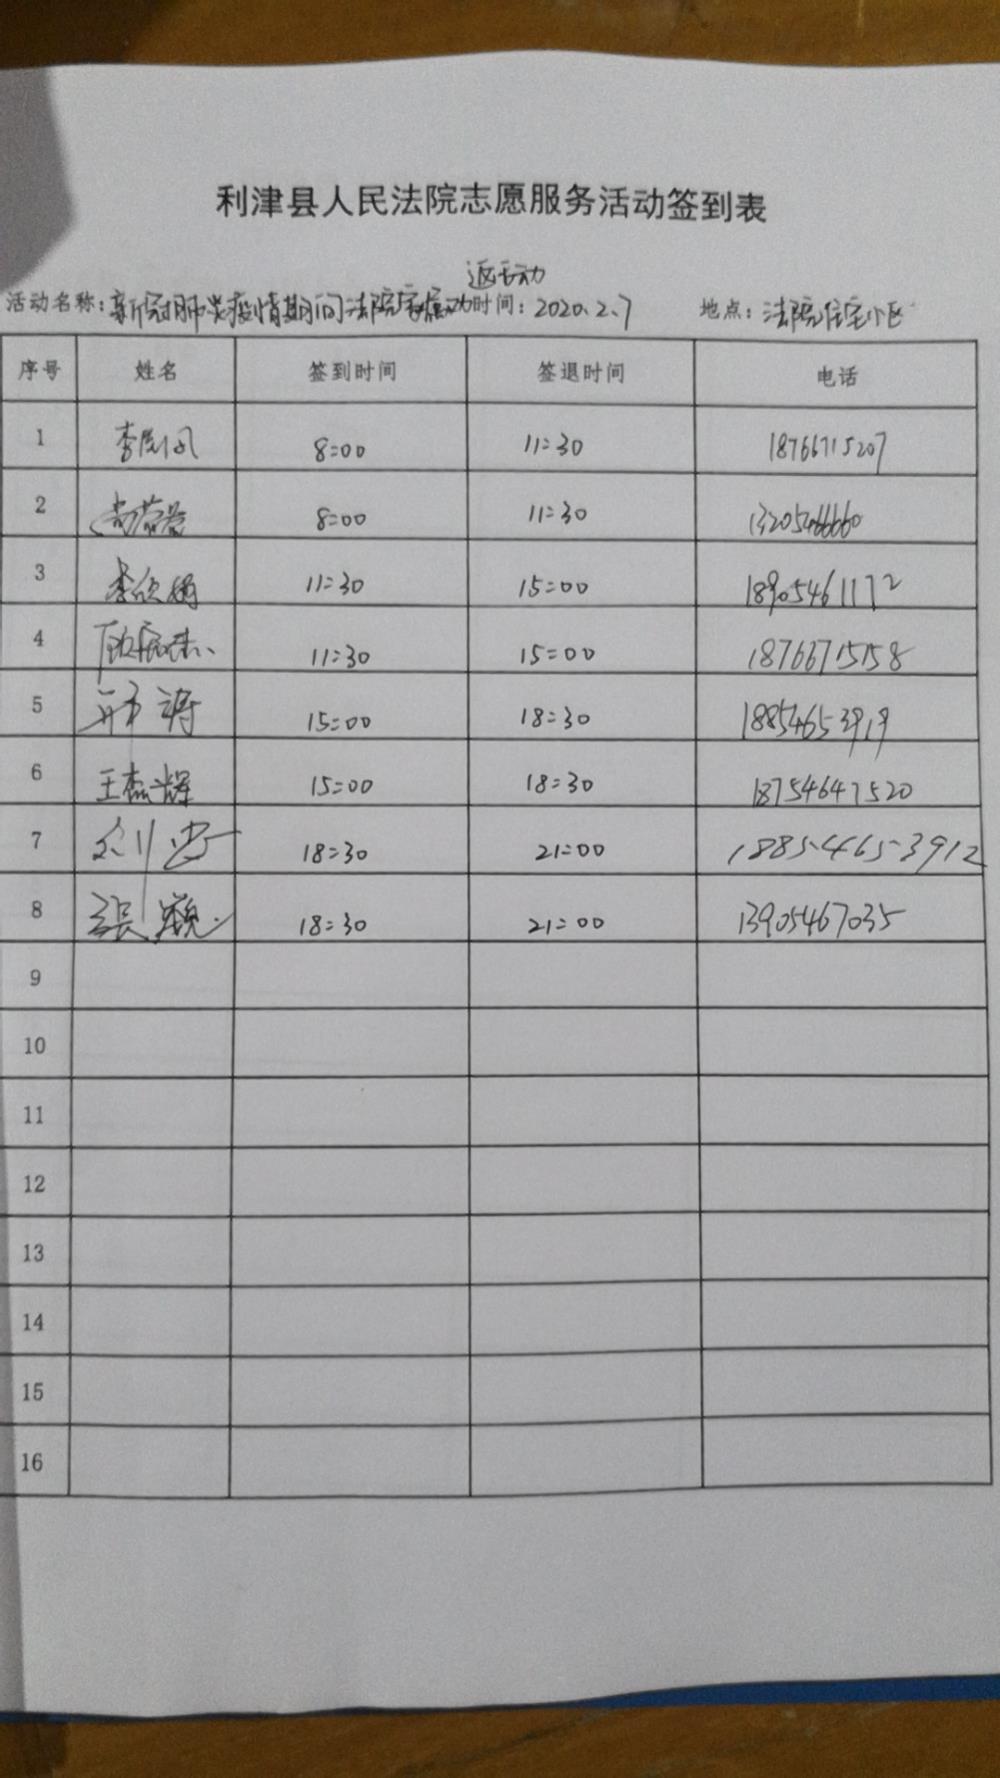 利津县人民法院志愿服务活动签到表
活动名称：新冠肺炎疫情期间法院 时间：2020.2.7 地点：法院住宅小区
序号 姓名 签到时间 签退时间 电话
1 8:00 11:30 18766715207
2 8:00 11:30 13205466660
3 李欣娟 11:30 15:00 18905461172
4 11:30 15:00 18766715158
5 15:00 18:30 18854653919
6 王磊辉 15:00 18:30 18754647520
7 18:30 21:00 18854653912
8 张颖 18:30 21:00 13905467035
9
10
11
12
13
14
15
16